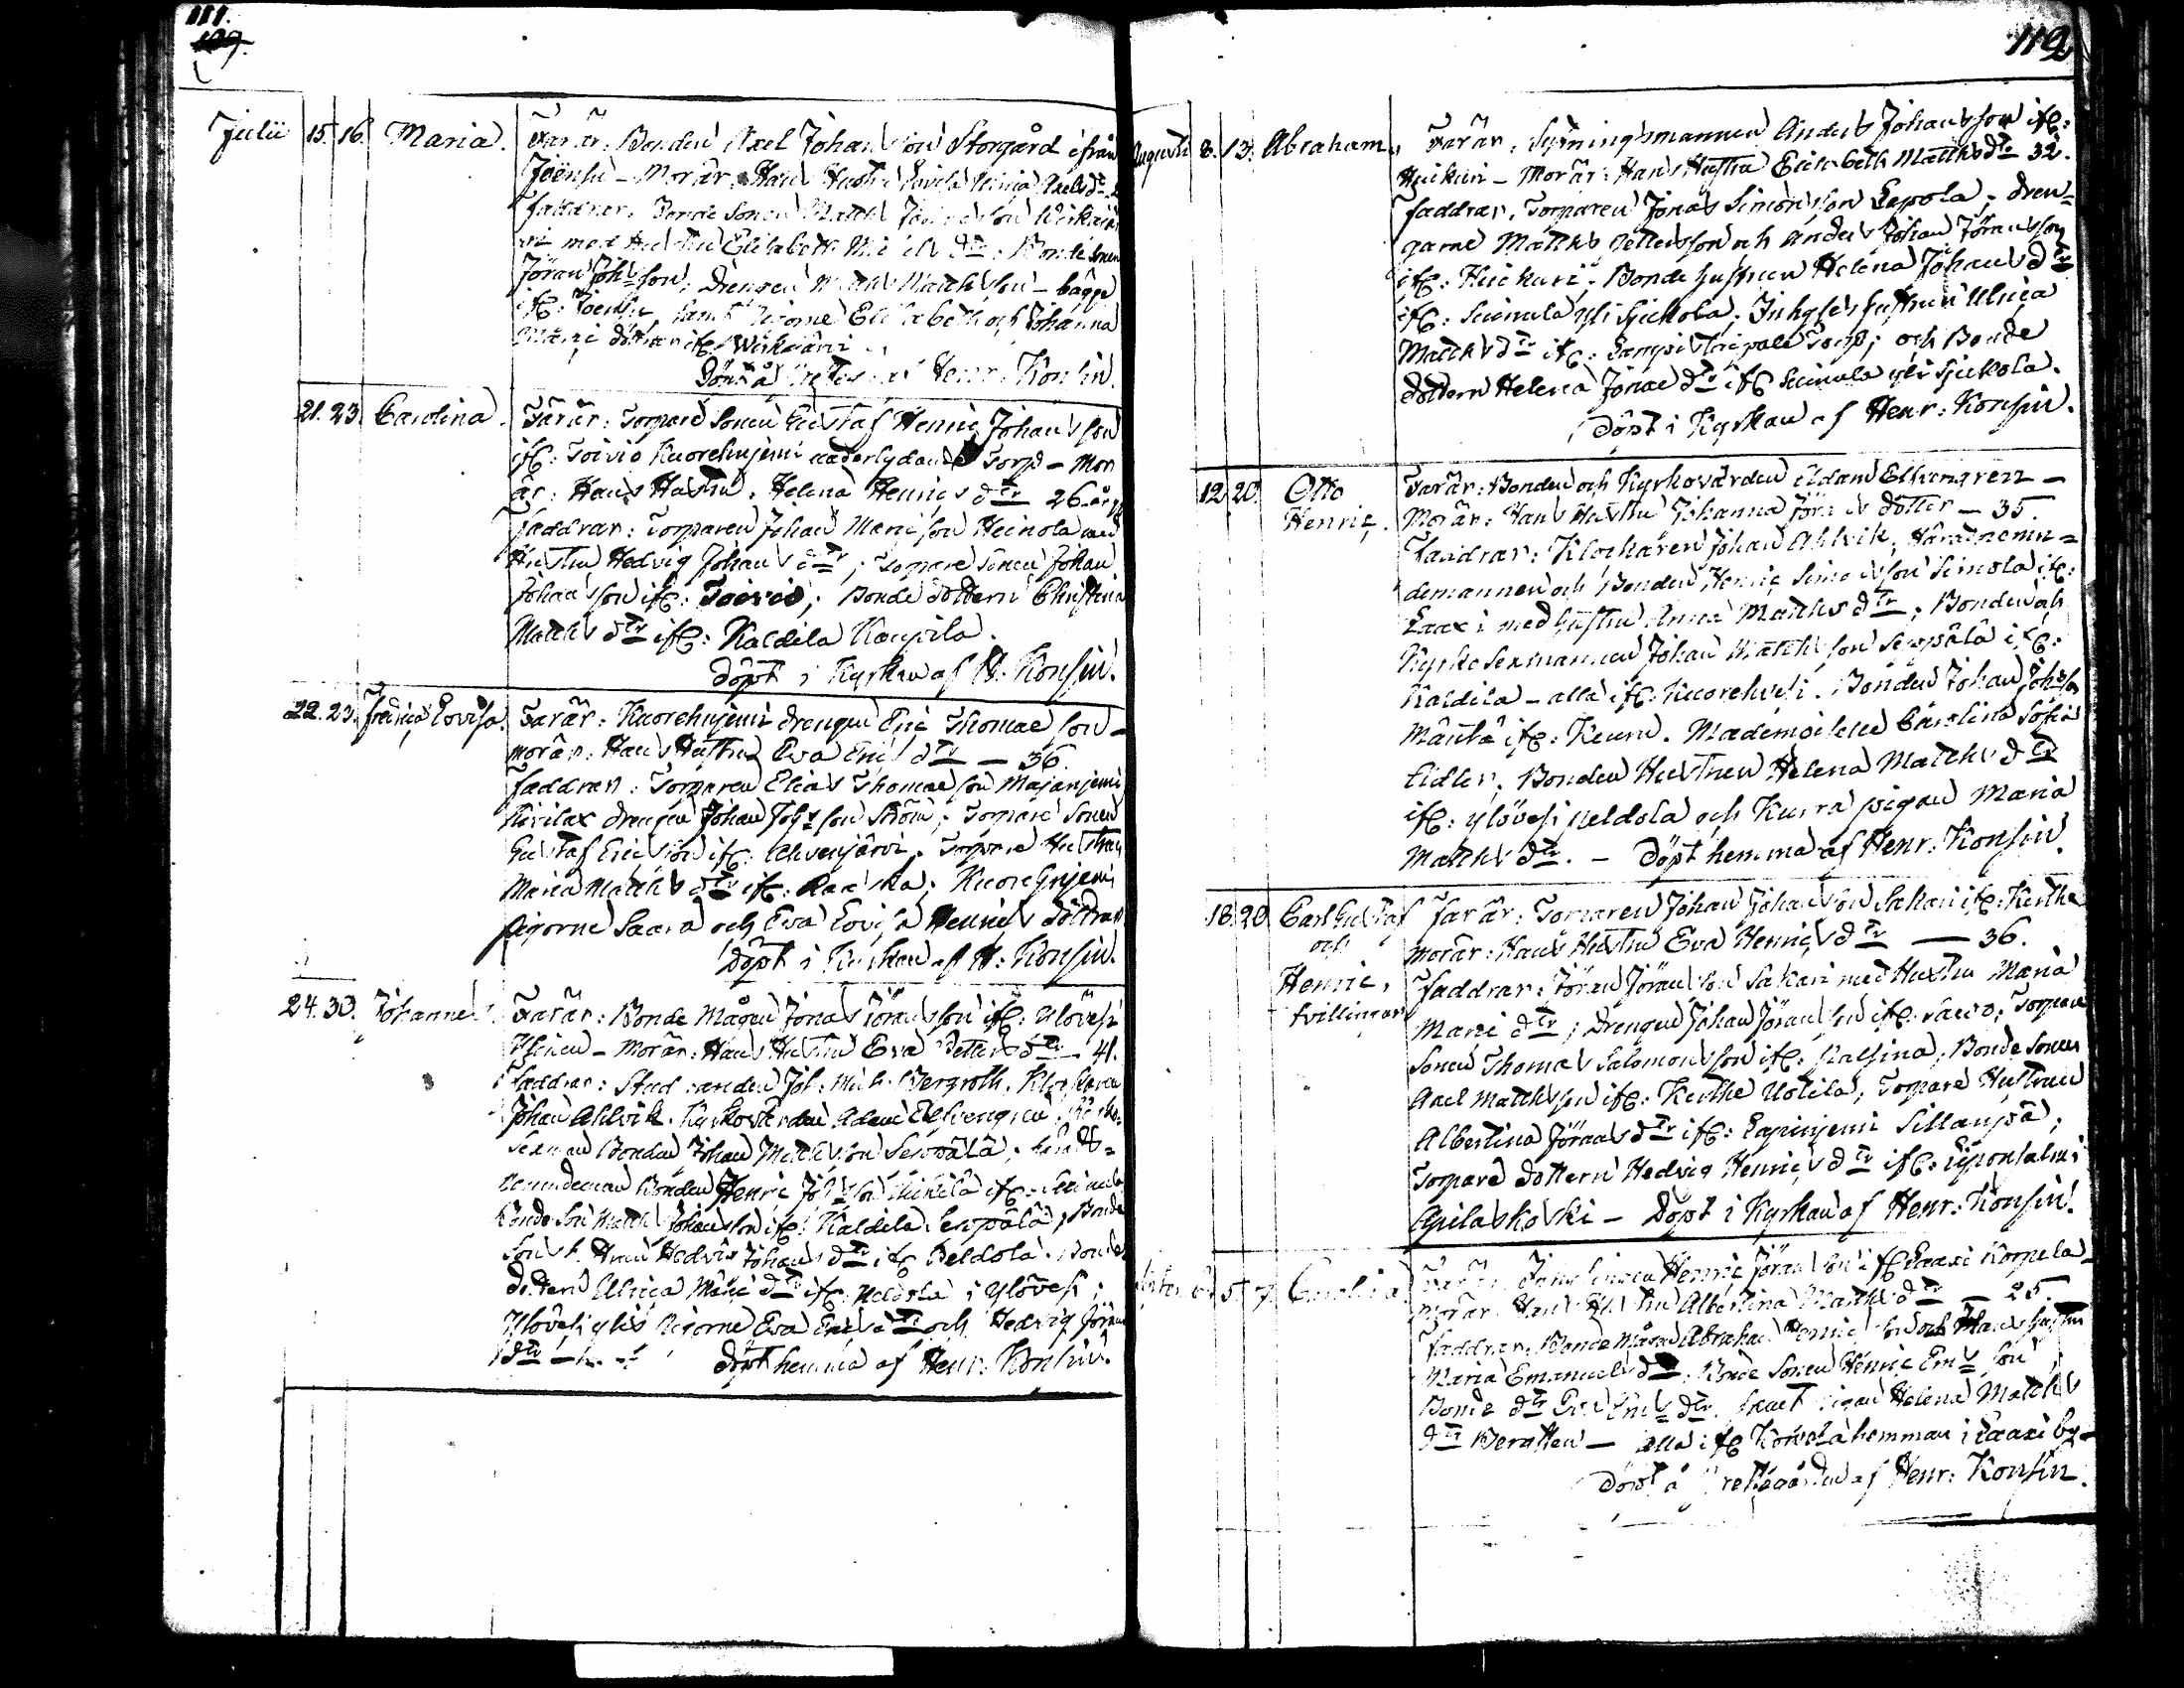 111.
109.
Julii 15. 16. Maria. Far är: Bonden Axel Johansson Storgård ifrån
Joensu – Mor är: Hans Hustru Lovisa Maria Axels dr
Faddrar: Bonde Sonen Matths Johansson
med Hustru Elisabeth dr. Bonde Sonen
Jöran Johsson; Drengen Matths Matthsson – bägge
ifr: Joensu, samt Pigorne Elisabeth och Johanna
döttrar ifr: Wirkajärvi
Döpt å af Henr: Konsin.
21. 23. Carolina. Far är: Torpare Sonen Gustaf Henric Johansson
ifr: Toivio Kuorehnjemi underlydande Torp – Mor
är: Hans Hustru, Helena Henrics dtr 26. år
Faddrar: Torparen Johan Maric son Heinola med
Hustru Hedvig Johans dtr; Torpare Sonen Johan
Johansson ifr: Toivio; Bonde dottern Christina
Matths dtr ifr: Kaldila Kaupila.
döpt i Kyrkan af H. Konsin.
22. 23. Fredrica Lovisa. Far är: Kuorehnjemi drengen Eric Thomae son –
mor är: Hans Hustru Eva Erics dtr — 36.
Faddrar: Torparen Elias Thomae son Majanjemi
Kivilax drengen Johan Johsson Ström; Torpare Sonen
Gustaf Ericsson ifr: Ahvenjärvi. Torpare Hustrun
Maria Matths dtr ifr: Raiska; Kuorehnjemi
pigorne Saara och Eva Lovisa Henrics döttrar
Döpt i Kyrkan af H: Konsin.
24. 30. Johannes. Far är: Bonde Mågen Jonas Jöransson ifr: Ylövesi
Yli – Mor är: Hans Hustru Eva Petters dtr – 41.
Faddrar: Studeranden Joh: Mich: Bergroth. Klockaren
Johan Ahlvik. Kyrkovärden Adam Elfvengren. Kyrko-
Sexman Bonden Johan Matthsson Seppälä; härads-
nemndeman Bonden Henric Johsson ifr:
bonde Son Matths Johansson ifr: Kaldila Seppälä; Bonde
Hedvig Johans dtr ifr Peldola. Bonde
dottern Ulrica Maric dtr ifr: Peldola i Ylövesi;
Ylövesi ylis Pigorne Eva Erics dtr och Hedvig Jörans
dtr döpt hemma af Henr: Konsin.
112
Augusti 8. 13. Abraham. Far är: Syningsmannen Anders Johansson ifr:
Huikuri – Mor är: Hans Hustru Elisabeth Matths dtr 32.
Faddrar: Torparen Jonas Simonsson Lepola; dren-
garne Matths Pettersson och Anders Johan Jöransson
ifr: Huikuri; Bonde hustrun Helena Johans dtr
ifr: Seinula yli Sjickola. Inhyses hustrun Ulrica
Matths dtr ifr: Lampis Taipale Torp; och Bonde
dottern Helena Jonae dtr ifr Seinula yli Sjickola.
Döpt i Kyrkan af Henr: Konsin.
12. 20. Otto Far är: Bonden och Kyrkovärden Adam Elfvengren –
Henric. Mor är: Hans Hustru Johanna Jörans dotter – 35.
Faddrar: Klockaren Johan Ahlvik, Häradsnemn-
demannen och Bonden Henric Simonsson Simola ifr:
Laax i med hustru Anna Matths dtr; Bonden och
Kyrko Sexmannen Johan Matthsson Seppälä ifr:
Kaldila – alla ifr: Kuorehvesi. Bonden Johan Johsson
Mänttä ifr: Keuru. Mademoiselle Carolina Sofia
Eidler; Bonden Hustrun Helena Matths dtr
ifr: ylövesi peldola och Kurra pigan Maria
Matths dtr. – Döpt hemma af Henr: Konsin.
18. 20. Carl Gustaf Far är: Torparen Johan Johansson Sakari ifr: Kerthe
och mor är: Hans Hustru Eva Henrics dtr — 36.
Henric, Faddrar: Jöran Jöransson Sakari med Hustru Maria
tvillingar Maric dtr; Drengen Johan Jöransson ifr: Torpare
Sonen Thomas Salomonsson ifr: Kalsina; Bonde Sonen
Axel Matthsson ifr: Kerthe Uotila; Torpare Hustrun
Albertina Jörans dtr ifr: Lapinjemi Sillanpää;
Torpare dottern Hedvig Henrics dtr ifr: Liponsalmi
Apilaskoski – Döpt i Kyrkan af Henr: Konsin.
5. 7. Carolina Far är: Henric Jöransson ifr Laaxi Korpela
mor är: Hans Hustru Albertina Matths dtr – 25.
Faddrar: Bonde mågen Abraham Henric son och Hans hustru
Maria Emanuels dtr; Bonde Sonen Henric Ems son
Bonde dtr Eva Ems dtr, samt pigan Helena Matths
dtr – alla ifr Korpela hemman i Laaxi by –
Döpt å af Henr: Konsin.